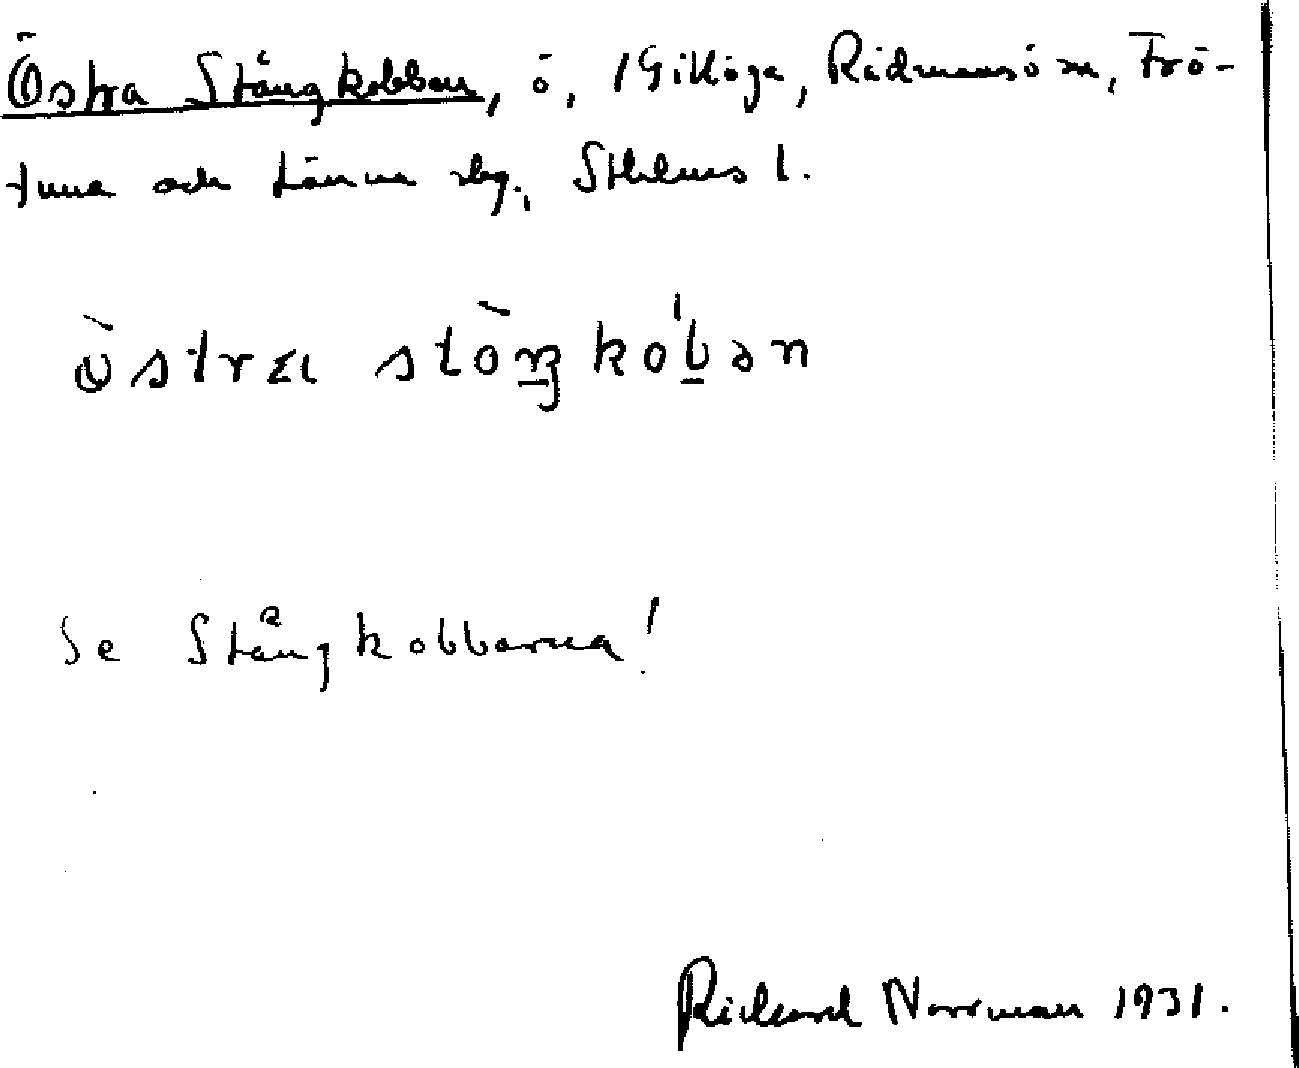 Östra Stångkobben, ö, i Gillöga, Rådmansö sn, Frö-
tuna och Länna slg., Sthlms l.
östra stöŋkobən
Se Stångkobbarna!
Rickard Norrman 1931.